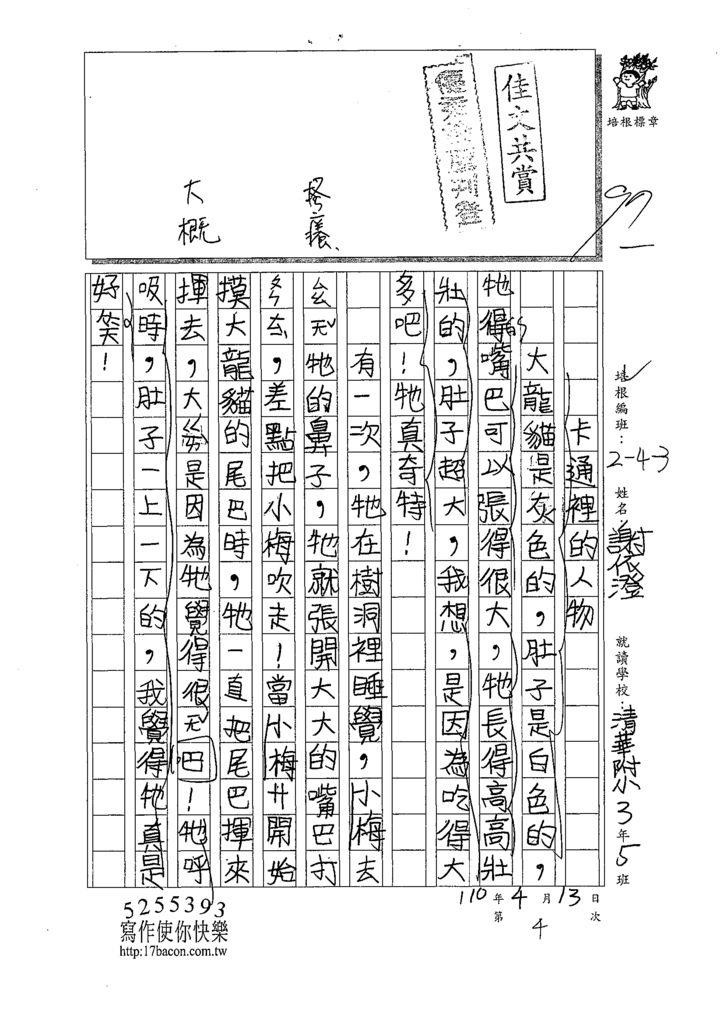 佳文共賞
培根標章
97
搔癢
大概
培根編班：2-43
姓名：謝依澄
就讀學校：清華附小3年5班
110年4月13日
第4次
卡通裡的人物
大龍貓是灰色的，肚子是白色的，
牠得的嘴巴可以張得很大，牠長得高高壯
壯的，肚子超大，我想，是因為吃得大
多吧！牠真奇特！
有一次，牠在樹洞裡睡覺，小梅去
ㄠㄤˇ牠的鼻子，牠就張開大大的嘴巴打
，差點把小梅吹走！當小梅ㄔ開始
摸大龍貓的尾巴時，牠一直把尾巴揮來
揮去，大是因為牠覺得很ㄤˇ吧！牠呼
吸時，肚子一上一下的，我覺得牠真是
好笑！
5255393
寫作使你快樂
http:17bacon.com.tw